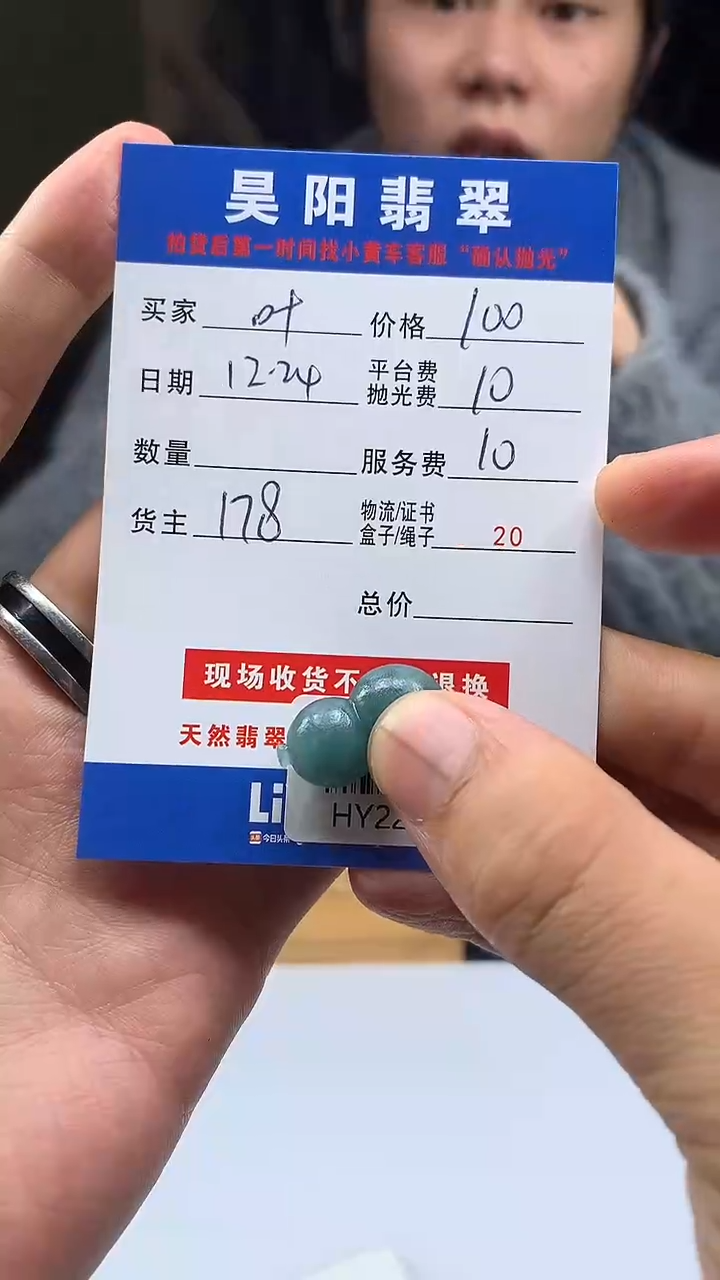 昊阳翡翠
拍货后第一时间找小黄车客服“确认抛光”
买家 叶 价格 100
日期 12.24 平台费 抛光费 10
数量 服务费 10
货主 178 物流/证书 盒子/绳子 20
总价
现场收货不 退换
天然翡翠
Li
今日头条
HY22